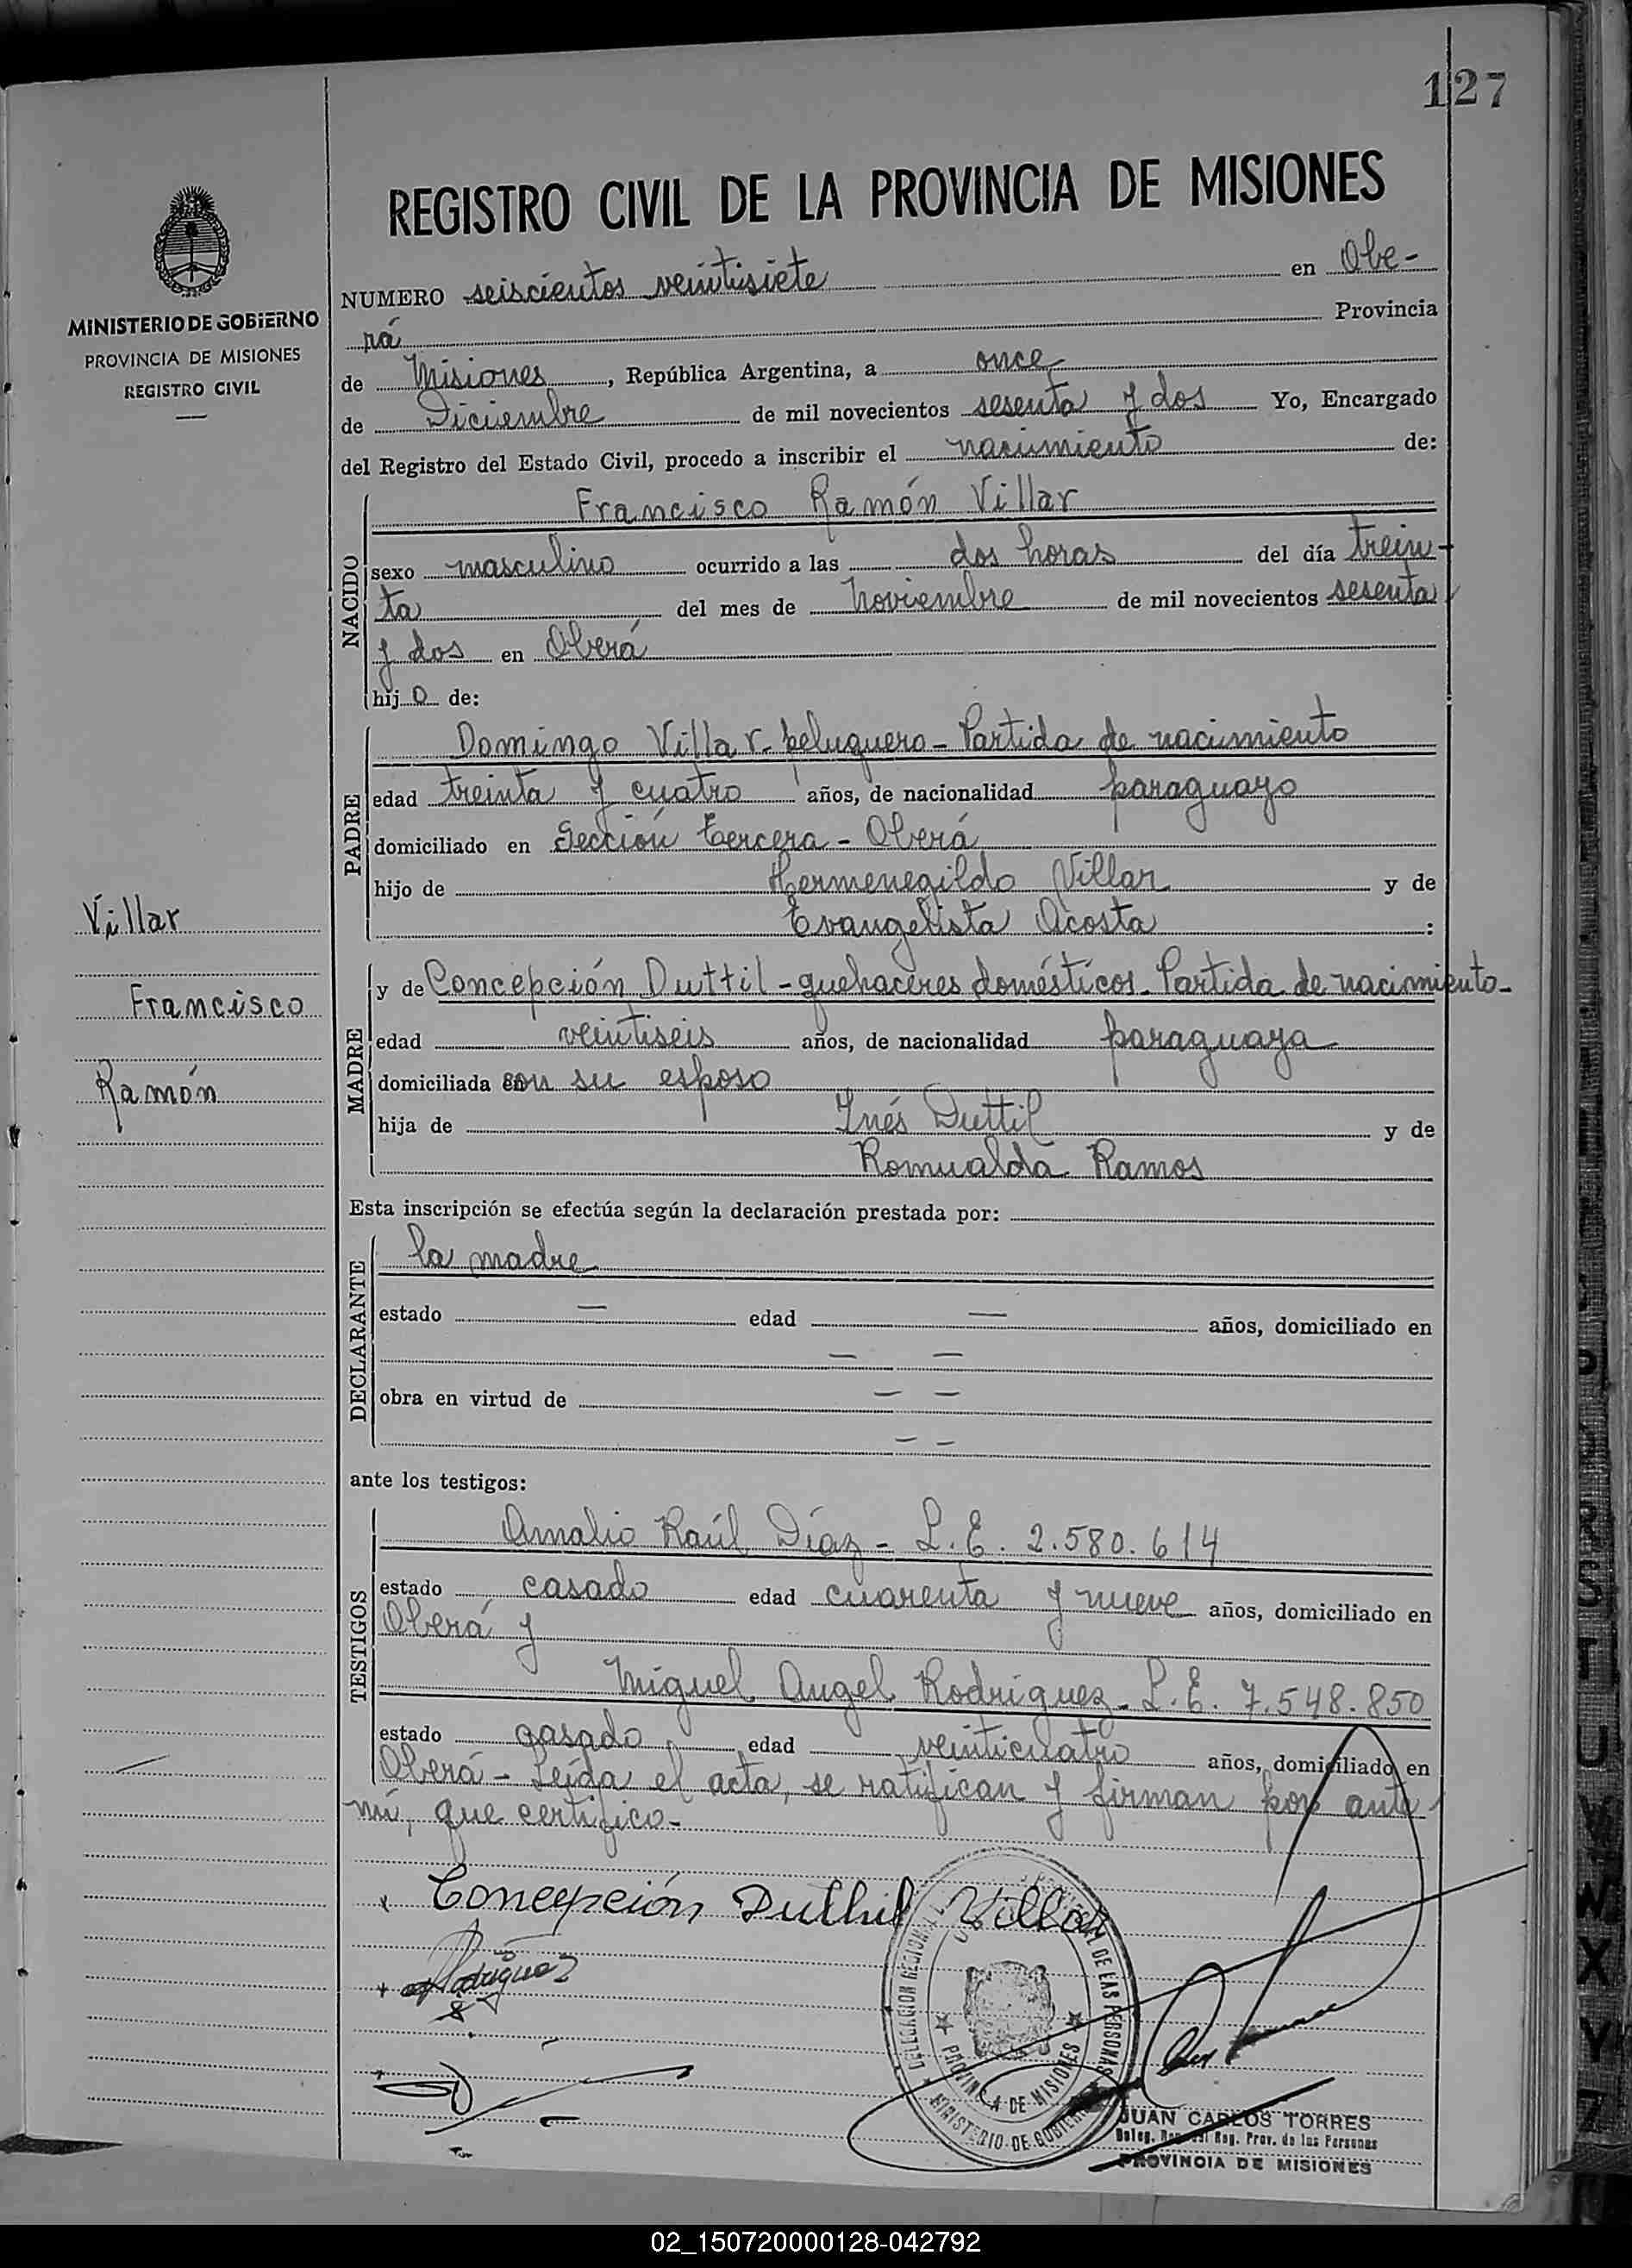 127
REGISTRO CIVIL DE LA PROVINCIA DE MISIONES
MINISTERIO DE GOBIERNO
PROVINCIA DE MISIONES
REGISTRO CIVIL
NUMERO seiscientos veintisiete en Obe-
rá Provincia
de Misiones, República Argentina, a once
de Diciembre de mil novecientos sesenta y dos Yo, Encargado
del Registro del Estado Civil, procedo a inscribir el nacimiento de:
NACIDO
Francisco Ramón Villar
sexo masculino ocurrido a las dos horas del día trein-
ta del mes de Noviembre de mil novecientos sesenta
y dos en Oberá
hijo de:
PADRE
Domingo Villar - peluquero - Partida de nacimiento
edad treinta y cuatro años, de nacionalidad paraguayo
domiciliado en Sección tercera - Oberá
hijo de Hermenegildo Villar y de
Evangelista Acosta :
Villar
Francisco
Ramón
MADRE
y de Concepción Duttil - quehaceres domésticos - Partida de nacimiento -
edad veintiseis años, de nacionalidad paraguaya
domiciliada con su esposo
hija de Inés Duttil y de
Romualda Ramos
Esta inscripción se efectúa según la declaración prestada por:
DECLARANTE
la madre
estado — edad — años, domiciliado en
— —
obra en virtud de — —
— —
ante los testigos:
TESTIGOS
Amalio Raúl Díaz - L. E. 2.580.614
estado casado edad cuarenta y nueve años, domiciliado en
Oberá y
Miguel Angel Rodriguez - L. E. 7.548.850
estado casado edad veinticuatro años, domiciliado en
Oberá - Leída el acta, se ratifican y firman por ante
mí, que certifico -
x Concepción Duthil Villar
Rodriguez
DELEGACION REGIONAL DE LAS PERSONAS
PROVINCIA DE MISIONES
MINISTERIO DE GOBIERNO
JUAN CARLOS TORRES
Deleg. Reg. Prov. de las Personas
PROVINCIA DE MISIONES
U
V
W
X
Y
Z
02_150720000128-042792